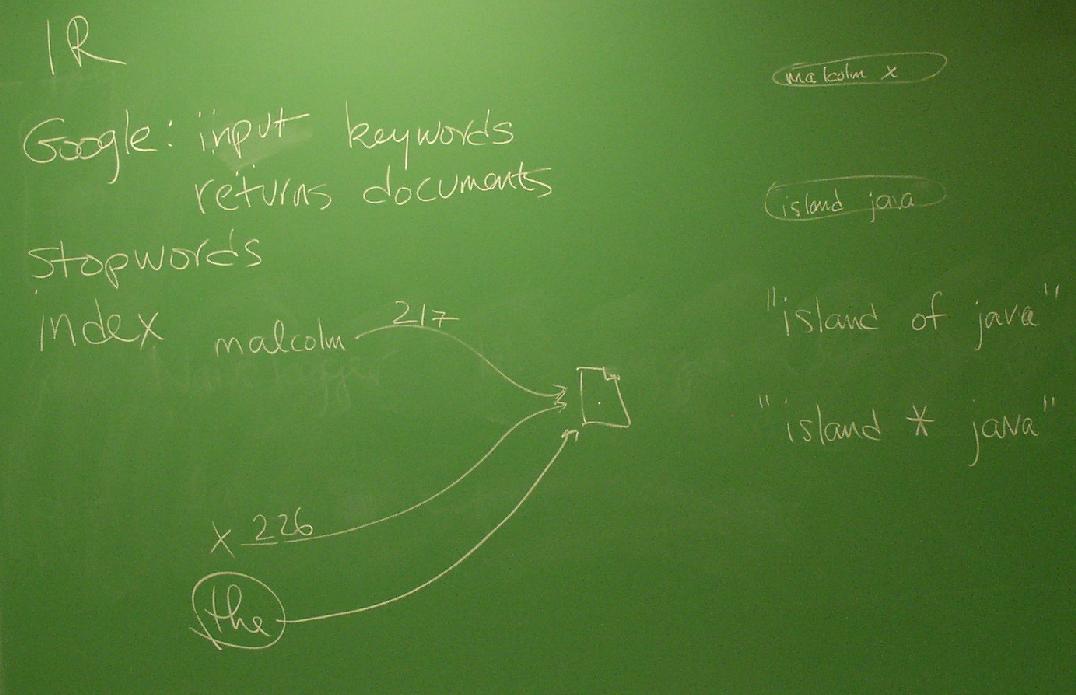 IR
Google: input keywords
returns documents
stopwords
index
malcolm 217
x 226
the
malcolm x
island java
"island of java"
"island * java"